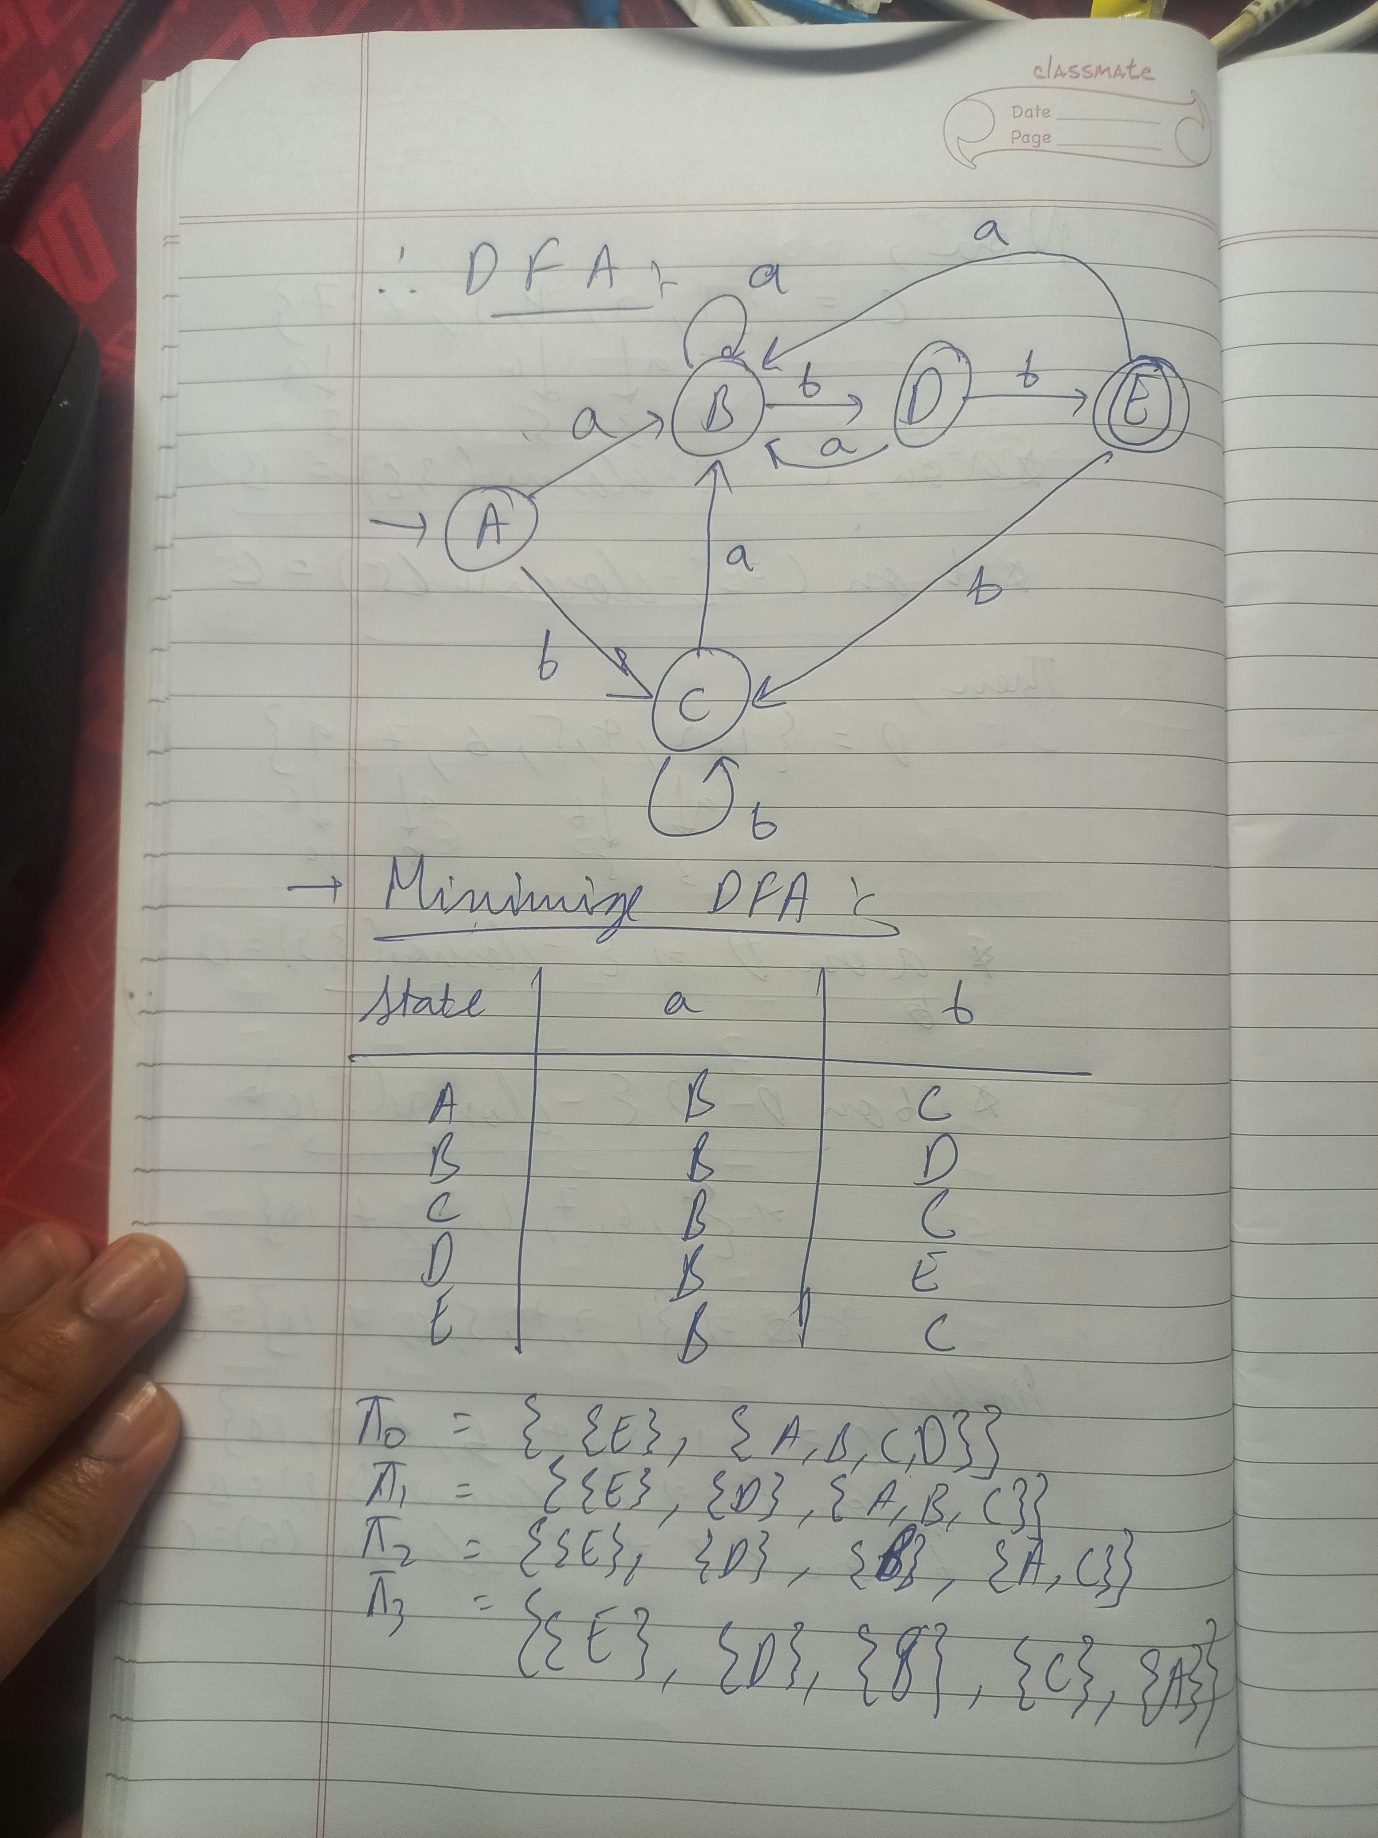 classmate
Date
Page
∴ DFA :-
a
a
B
b
D
b
E
a
a
A
a
b
b
C
b
→ Minimize DFA :-
State a b
A B C
B B D
C B C
D B E
E B C
π0 = { {E}, {A, B, C, D}}
π1 = {{E}, {D}, {A, B, C}}
π2 = {{E}, {D}, {B}, {A, C}}
π3 = {{E}, {D}, {B}, {C}, {A}}